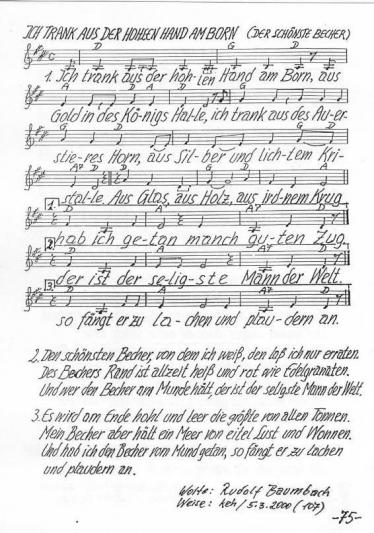 ICH TRANK AUS DER HOHLEN HAND AM BORN (DER SCHÖNSTE BECHER)
D G D
1. Ich trank aus der hoh-len Hand am Born, aus
A D A D G
Gold in des Kö-nigs Hal-le, ich trank aus des Au-er-
stie-res Horn, aus Sil-ber und lich-tem Kri-
stal-le. Aus Glas, aus Holz, aus ird-nem Krug
1.
hab ich ge-tan manch gu-ten Zug.
2.
der ist der se-lig-ste Mann der Welt.
3.
so fängt er zu la-chen und plau-dern an.
2. Den schönsten Becher, von dem ich weiß, den laß ich nur erraten.
Des Bechers Rand ist allzeit heiß und rot wie Edelgranaten.
Und wer den Becher am Munde hält, der ist der seligste Mann der Welt.
3. Es wird am Ende hohl und leer die größte von allen Tonnen.
Mein Becher aber hält ein Meer von eitel Lust und Wonnen.
Und hab ich den Becher vom Mund getan, so fängt er zu lachen
und plaudern an.
Worte: Rudolf Baumbach
Weise: keh / 5.3.2000 (107)
-75-